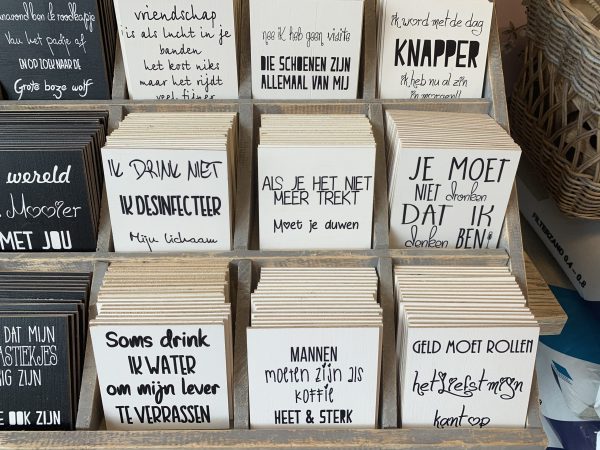 anavond ben ik roodkapje
Van het padje af
EN OP ZOEK NAAR DE
Grote boze wolf
vriendschap
is als lucht in je
banden
het kost niks
maar het rijdt
veel fijner
nee ik heb geen visite
DIE SCHOENEN ZIJN
ALLEMAAL VAN MIJ
ik word met de dag
KNAPPER
ik heb nu al zin
in morgen!!
wereld
Mooier
MET JOU
IK DRINK NIET
IK DESINFECTEER
Mijn lichaam
ALS JE HET NIET
MEER TREKT
Moet je duwen
JE MOET
NIET dronken
DAT IK
denken BEN!
DAT MIJN
ASTIEKJES
NIG ZIJN
E OOK ZIJN
Soms drink
IK WATER
om mijn lever
TE VERRASSEN
MANNEN
moeten zijn als
koffie
HEET & STERK
GELD MOET ROLLEN
het liefst mijn
kant op
FILTERZAND 0.4 - 0.8